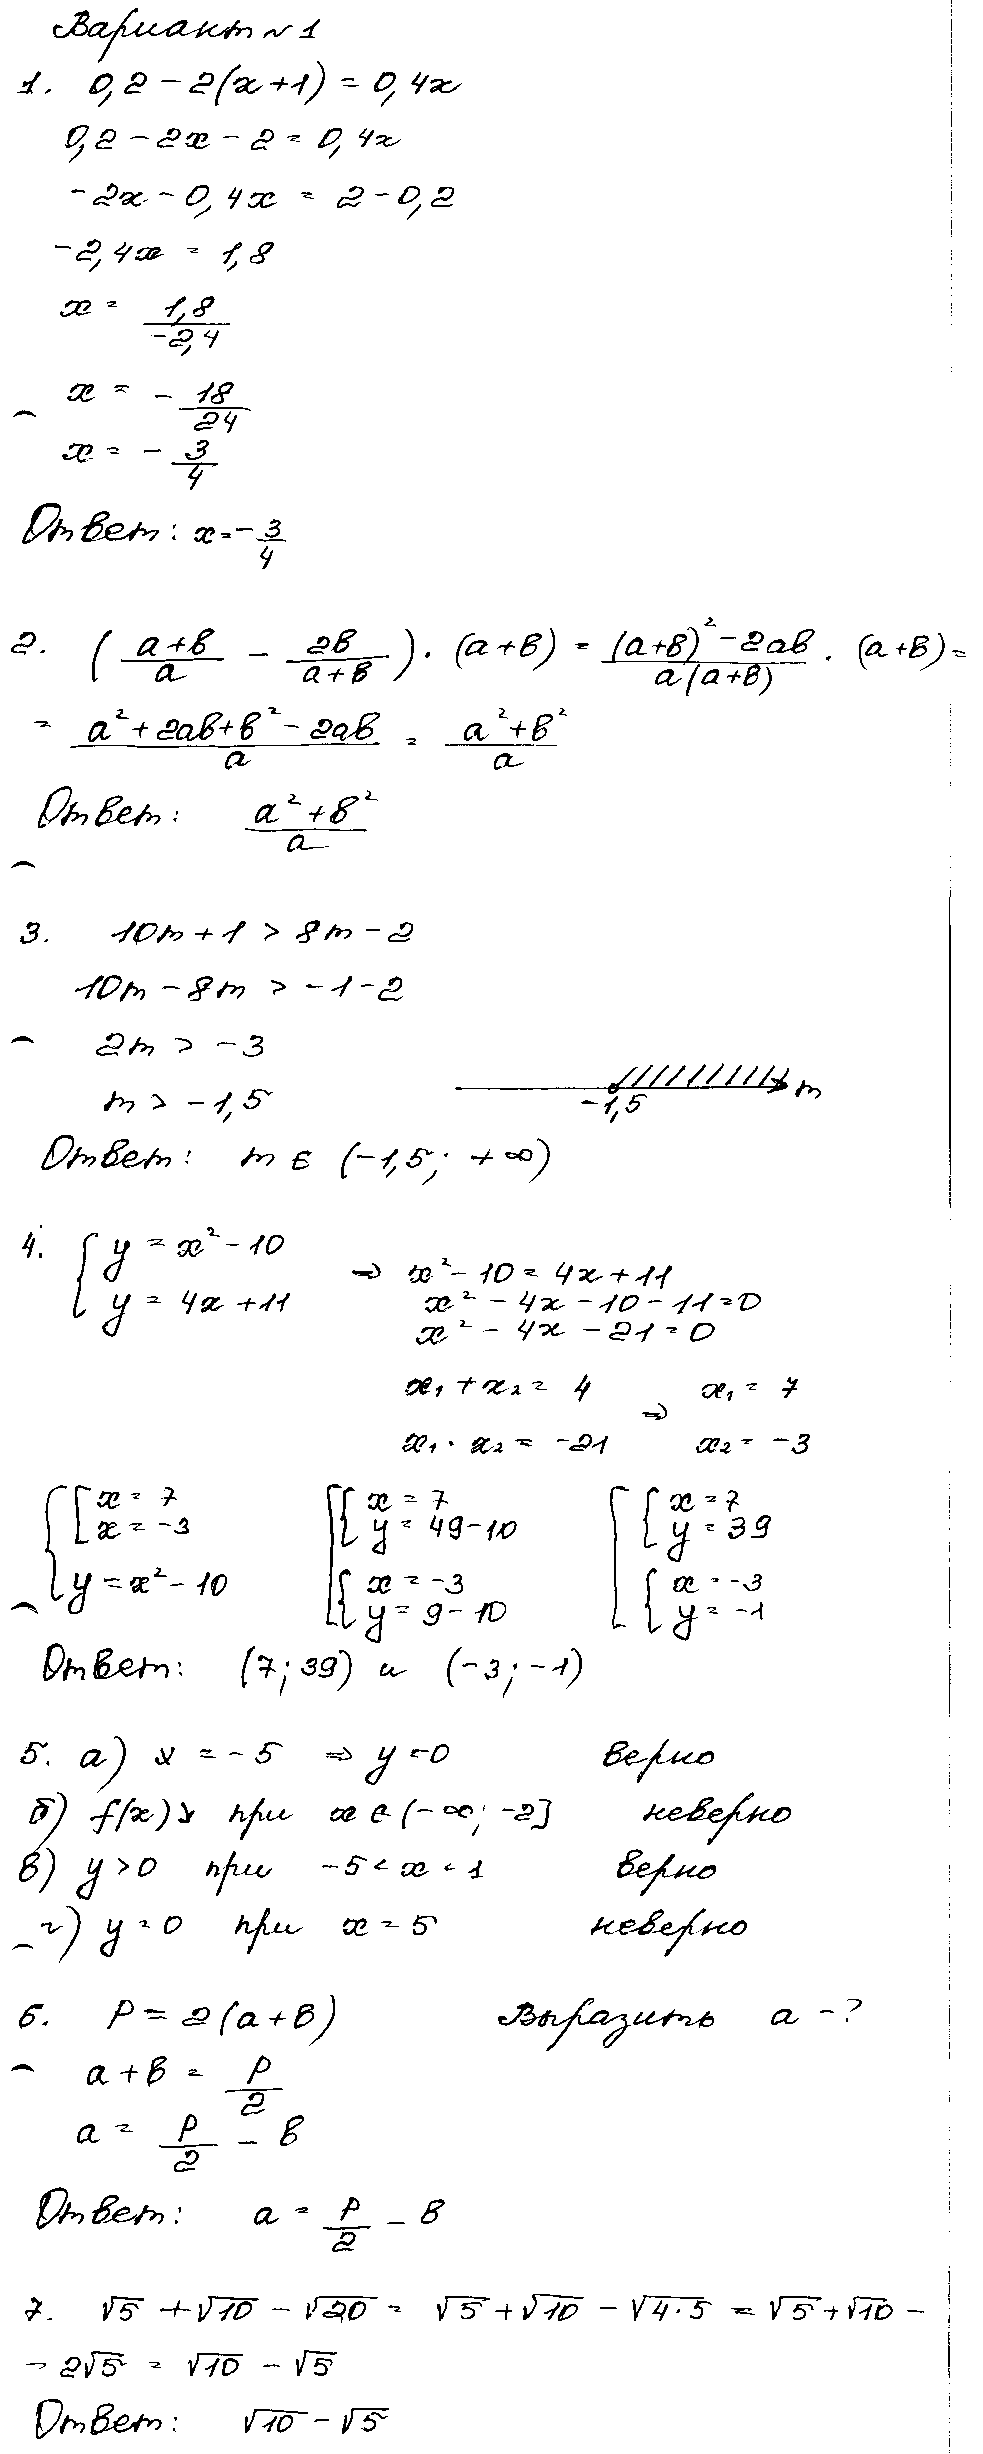 Вариант №1
1. 0,2 - 2(x+1) = 0,4x
0,2 - 2x - 2 = 0,4x
-2x - 0,4x = 2 - 0,2
-2,4x = 1,8
x = 1,8/-2,4
x = - 18/24
x = - 3/4
Ответ: x = - 3/4
2. ( (a+в)/a - 2в/(a+в) ) · (a+в) = ((a+в)² - 2aв)/(a(a+в)) · (a+в) =
= (a² + 2aв + в² - 2aв)/a = (a² + в²)/a
Ответ: (a² + в²)/a
3. 10m + 1 > 8m - 2
10m - 8m > -1 - 2
2m > -3
m > -1,5
-1,5 m
Ответ: m ∈ (-1,5; +∞)
4. { y = x² - 10
y = 4x + 11
⇒ x² - 10 = 4x + 11
x² - 4x - 10 - 11 = 0
x² - 4x - 21 = 0
x₁ + x₂ = 4 ⇒ x₁ = 7
x₁ · x₂ = -21 x₂ = -3
{ [ x = 7 [ { x = 7 [ { x = 7
x = -3 y = 49 - 10 y = 39
y = x² - 10 { x = -3 { x = -3
y = 9 - 10 y = -1
Ответ: (7; 39) и (-3; -1)
5. а) x = -5 ⇒ y = 0 верно
б) f(x)↘ при x ∈ (-∞; -2] неверно
в) y > 0 при -5 < x < 1 верно
г) y = 0 при x = 5 неверно
6. P = 2(a+в) Выразить a - ?
a + в = P/2
a = P/2 - в
Ответ: a = P/2 - в
7. √5 + √10 - √20 = √5 + √10 - √4·5 = √5 + √10 -
- 2√5 = √10 - √5
Ответ: √10 - √5